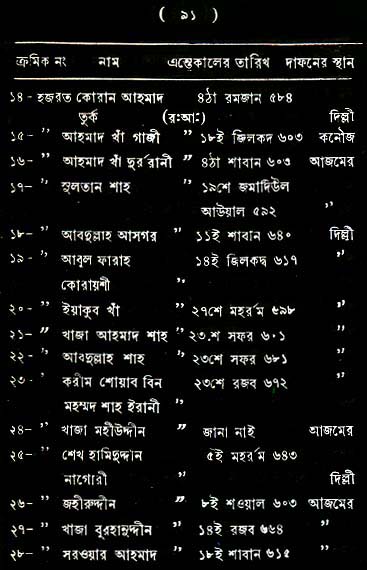 ( ৯১ )
ক্রমিক নং নাম এন্তেকালের তারিখ দাফনের স্থান
১৪ - হজরত কোরান আহমাদ ৪ঠা রমজান ৫৮৪
তুর্ক (রঃআঃ) দিল্লী
১৫- " আহমাদ খাঁ গাজী " ১৮ই জিলকদ ৬০৩ কনৌজ
১৬- " আহমাদ খাঁ দুর্রানী " ৪ঠা শাবান ৬০৩ আজমের
১৭- " সুলতান শাহ " ১৯শে জমাদিউল
আউয়াল ৫৯২ "
১৮- " আবদুল্লাহ আসগর " ১১ই শাবান ৬৪০ দিল্লী
১৯- " আবুল ফারাহ ১৪ই জিলকদ্ব ৬১৭ "
কোরায়শী "
২০- " ইয়াকুব খাঁ " ২৭শে মহর্রম ৫৯৮ "
২১- " খাজা আহমাদ শাহ " ২৩.শ সফর ৬০১ "
২২- " আবদুল্লাহ শাহ " ২৩শে সফর ৬৮১ "
২৩- " করীম শোয়াব বিন ২৩শে রজব ৬৭২ "
মহম্মদ শাহ ইরানী "
২৪- " খাজা মহীউদ্দীন " জানা নাই আজমের
২৫- " শেখ হামিদুদ্দীন ৫ই মহর্রম ৬৪৩
নাগোরী " দিল্লী
২৬- " জহীরুদ্দীন " ৮ই শওয়াল ৬০৩ আজমের
২৭- " খাজা বুরহানুদ্দীন " ১৪ই রজব ৬৬৪ "
২৮- " সরওয়ার আহমাদ " ১৮ই শাবান ৬১৫ "